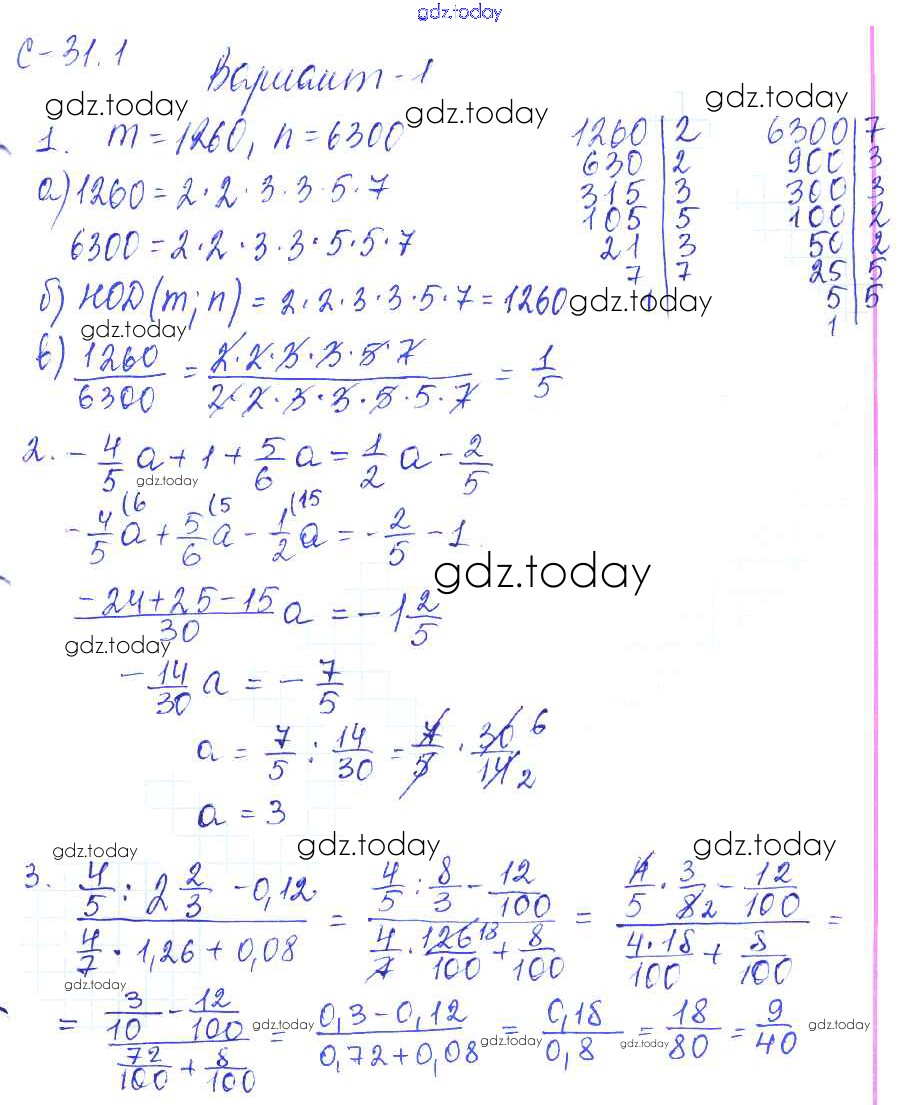 gdz.today
С-31.1
Вариант-1
gdz.today gdz.today gdz.today
1. m = 1260, n = 6300
а) 1260 = 2·2·3·3·5·7
6300 = 2·2·3·3·5·5·7
1260 | 2
630 | 2
315 | 3
105 | 5
21 | 3
7 | 7
1
6300 | 7
900 | 3
300 | 3
100 | 2
50 | 2
25 | 5
5 | 5
1
б) НОD(m; n) = 2·2·3·3·5·7 = 1260 gdz.today
gdz.today
в) 1260/6300 = 2·2·3·3·5·7/2·2·3·3·5·5·7 = 1/5
2. -4/5 a + 1 + 5/6 a = 1/2 a - 2/5
gdz.today
-4/5(6 a + 5/6(5 a - 1/2(15 a = -2/5 - 1
gdz.today
-24+25-15/30 a = -1 2/5
gdz.today
-14/30 a = -7/5
a = 7/5 : 14/30 = 7/5 · 30 6/14 2
a = 3
gdz.today gdz.today gdz.today
3. 4/5 : 2 2/3 - 0,12 / 4/7 · 1,26 + 0,08 = 4/5 : 8/3 - 12/100 / 4/7 · 126 18/100 + 8/100 = 4/5 · 3/8 2 - 12/100 / 4·18/100 + 8/100 =
gdz.today
= 3/10 - 12/100 / 72/100 + 8/100 = 0,3 - 0,12/0,72 + 0,08 = 0,18/0,8 = 18/80 = 9/40
gdz.today gdz.today gdz.today gdz.today